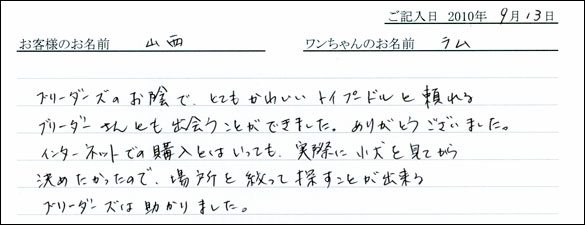 ご記入日 2010年 9月13日
お客様のお名前 山西 ワンちゃんのお名前 ラム
ブリーダーズのお陰で、とてもかわいいトイプードルと頼れる
ブリーダーさんとも出会うことができました。ありがとうございました。
インターネットでの購入とはいっても、実際に小犬を見てから
決めたかったので、場所を絞って探すことが出来る
ブリーダーズは助かりました。